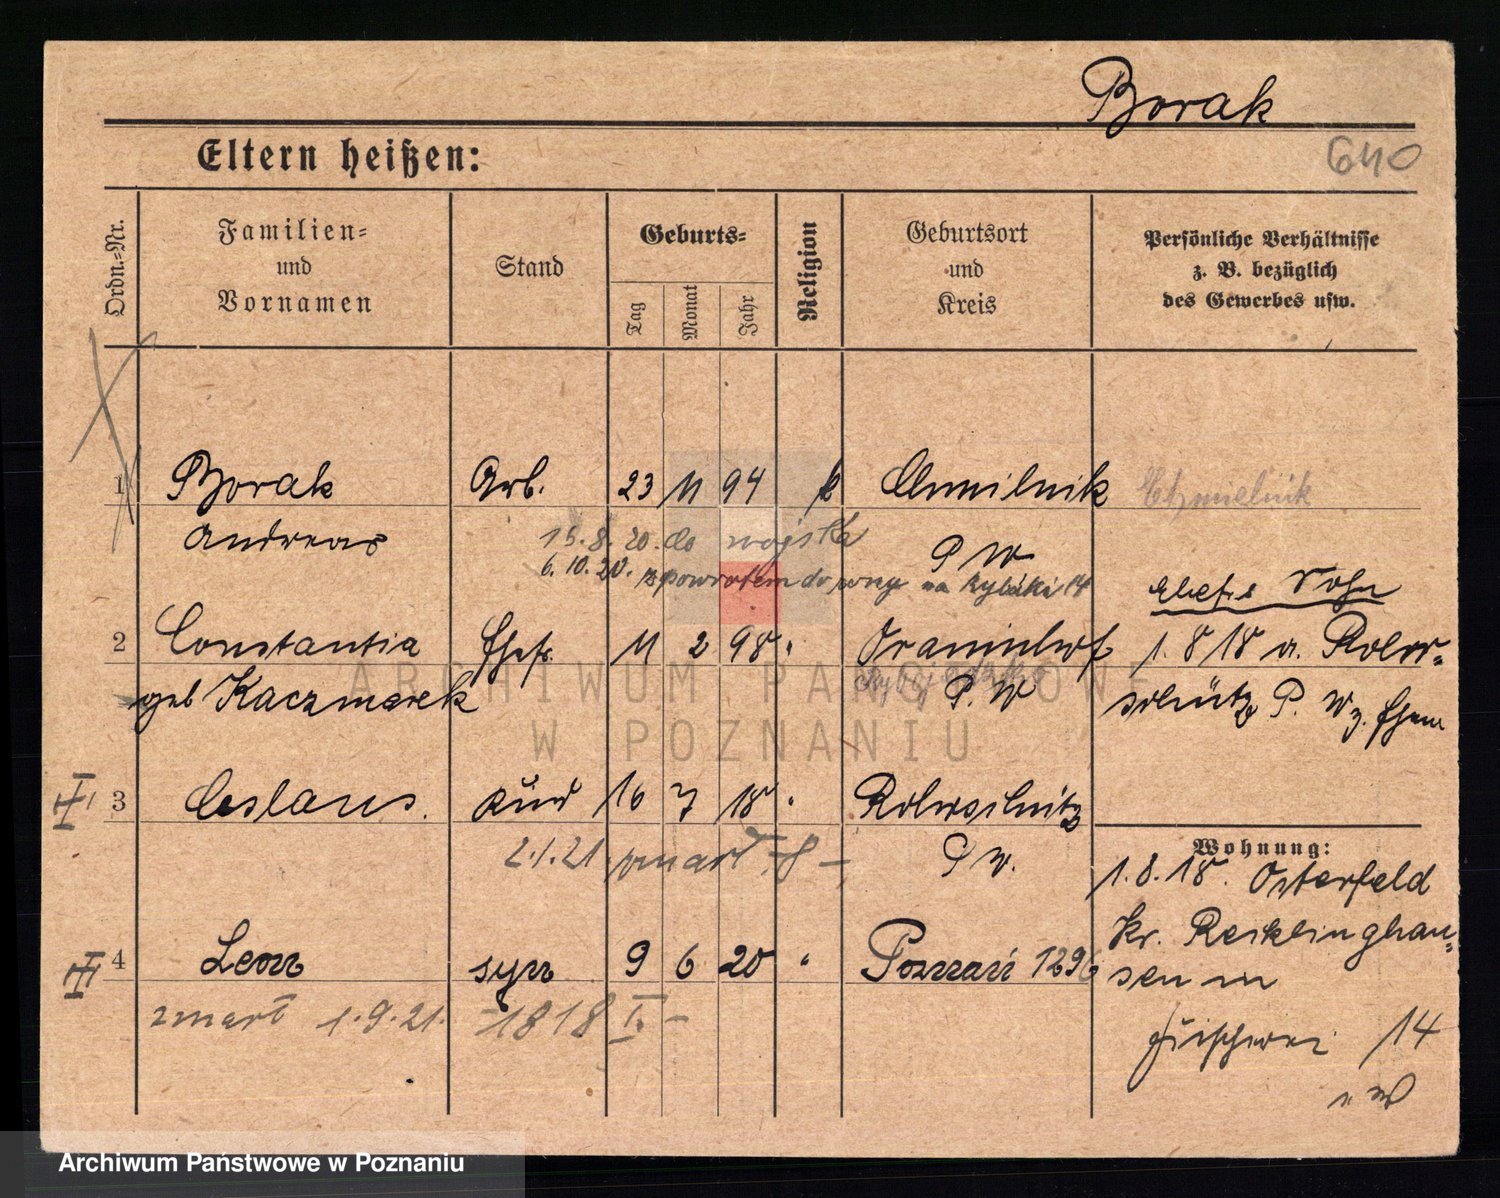 Borak
640
Eltern heißen:
Ordn.-Nr.
Familien-
und
Vornamen
Stand
Geburts-
Tag
Monat
Jahr
Religion
Geburtsort
und
Kreis
Persönliche Verhältnisse
z. B. bezüglich
des Gewerbes usw.
1 Borak Arb. 23 11 94 k Chmilnik Chmielnik
Andreas
15.8.20. do wojska P W
6.10.20. z powrotem do żony na Rybaki 14
Sohn
2 Constantia Ehefr. 11 2 98 " 1.8 18 a.
geb Kaczmarek P. W P. W z. Ehem
3 Ceslaus. Kind 16 7 18 "
2.1.21. zmarł P W.
Wohnung:
1.8.18. Osterfeld
Kr. Recklinghau-
sen
4 Leon syn 9 6 20 " Poznań 1296
zmarł 1.9.21. 1818 I -
Fischerei 14
ARCHIWUM PAŃSTWOWE
W POZNANIU
Archiwum Państwowe w Poznaniu